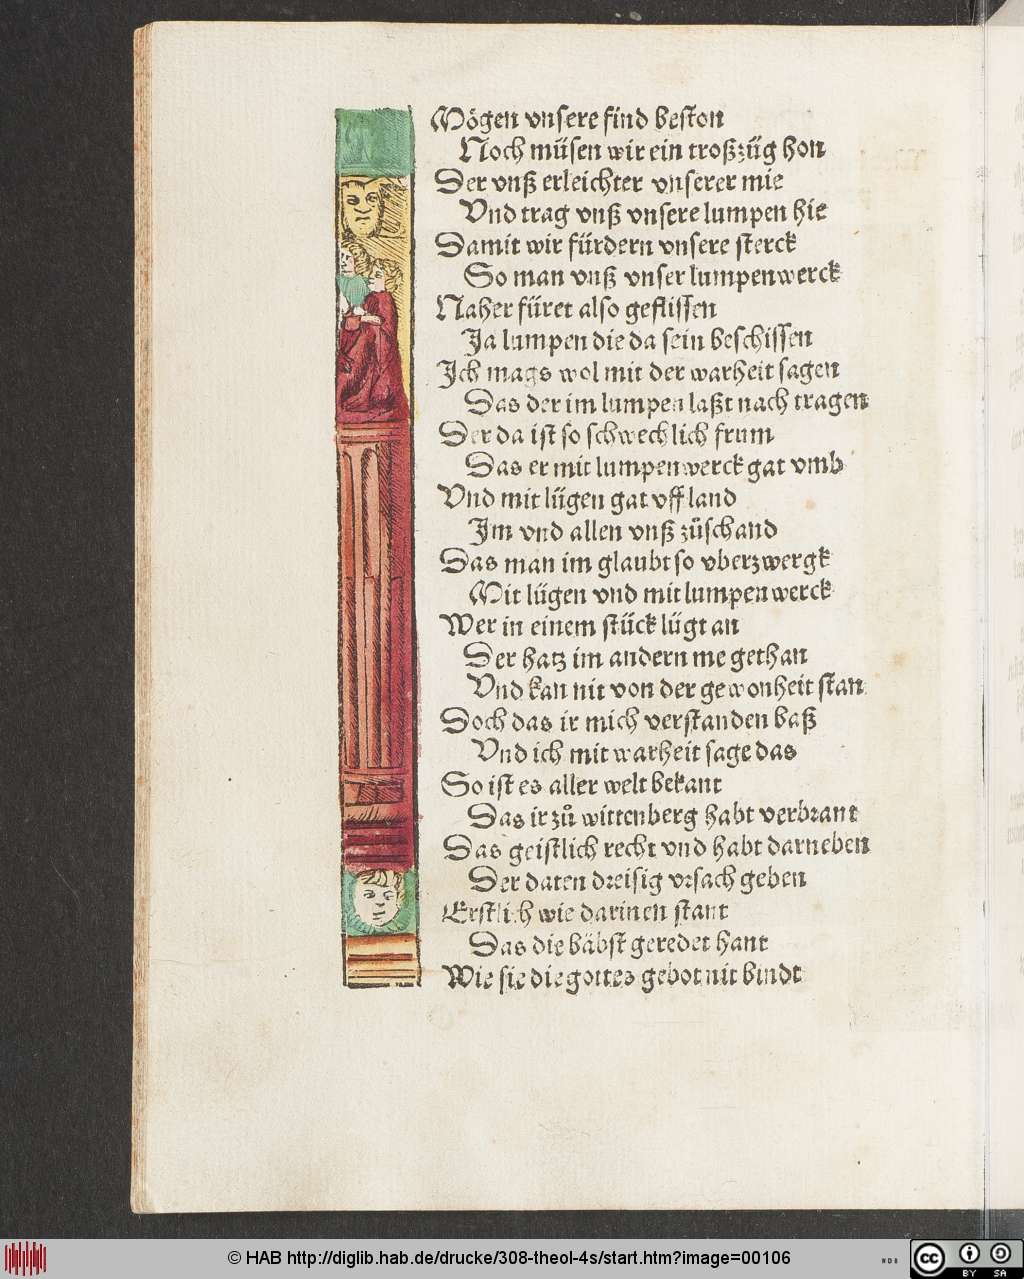 Mögen vnsere find beston
Noch müsen wir ein troßzüg hon
Der vnß erleichter vnserer mie
Vnd trag vnß vnsere lumpen hie
Damit wir fürdern vnsere sterck
So man vnß vnser lumpenwerck
Naher füret also geflissen
Ja lumpen die da sein beschissen
Ich mags wol mit der warheit sagen
Das der im lumpen laßt nach tragen
Der da ist so schwechlich frum
Das er mit lumpenwerck gat vmb
Vnd mit lügen gat vff land
Im vnd allen vnß zůschand
Das man im glaubt so vberzwergk
Mit lügen vnd mit lumpenwerck
Wer in einem stück lügt an
Der hatz im andern me gethan
Vnd kan nit von der gewonheit stan
Doch das ir mich verstanden baß
Vnd ich mit warheit sage das
So ist es aller welt bekant
Das ir zů wittenberg habt verbrant
Das geistlich recht vnd habt darneben
Der daten dreisig vrsach geben
Erstlich wie darinen stant
Das die bäbst geredet hant
Wie sie die gottes gebot nit bindt
© HAB http://diglib.hab.de/drucke/308-theol-4s/start.htm?image=00106
WDB
cc BY SA